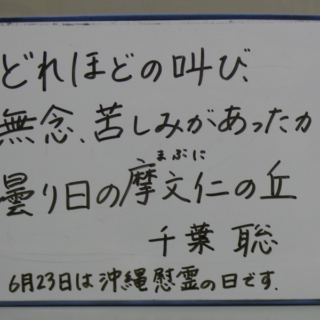 どれほどの叫び、
無念、苦しみがあったか
まぶに
曇り日の摩文仁の丘
千葉 聡
6月23日は沖縄慰霊の日です.